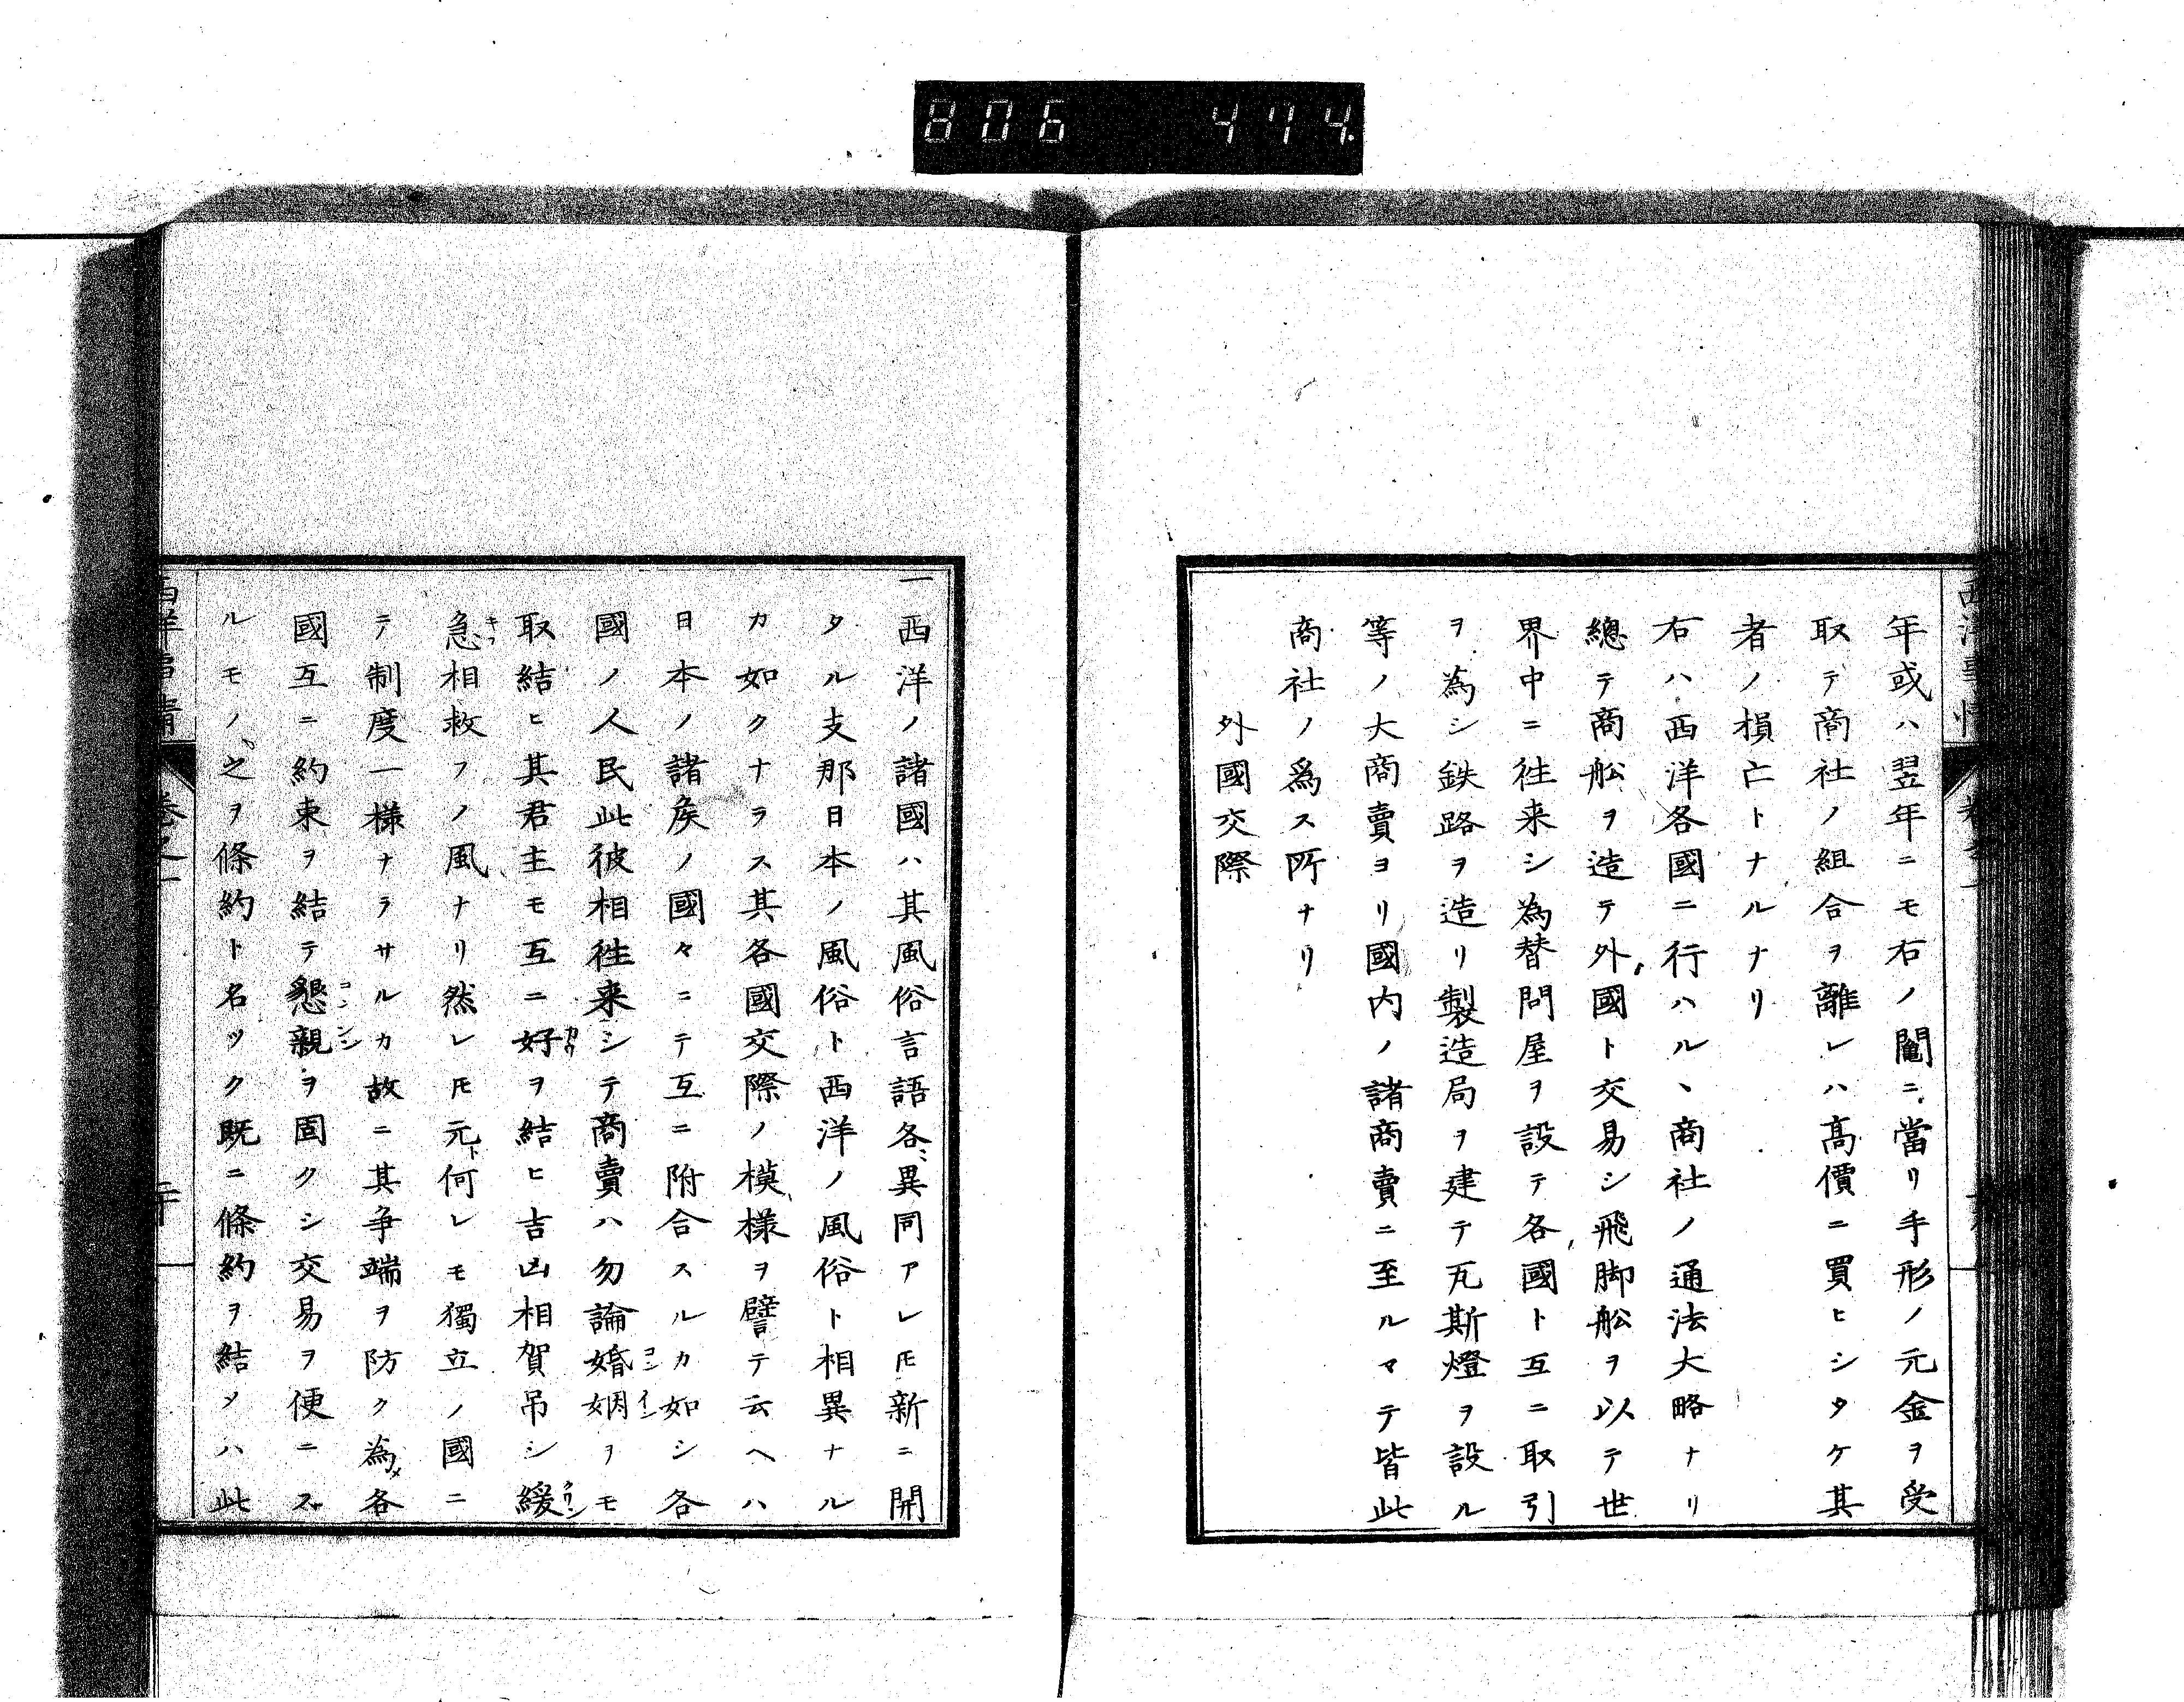 806 474.
年或ハ翌年ニモ右ノ鬮ニ當リ手形ノ元金ヲ受
取テ商社ノ組合ヲ離レハ高價ニ買ヒシタケ其
者ノ損亡トナルナリ
右ハ西洋各國ニ行ハルヽ商社ノ通法大略ナリ
總テ商舩ヲ造テ外國ト交易シ飛脚舩ヲ以テ世
界中ニ徃来シ為替問屋ヲ設テ各國ト互ニ取引
ヲ為シ鉄路ヲ造リ製造局ヲ建テ瓦斯燈ヲ設ル
等ノ大商賣ヨリ國内ノ諸商賣ニ至ルマテ皆此
商社ノ爲ス所ナリ
外國交際
一西洋ノ諸國ハ其風俗言語各〻異同アレ𪜈新ニ開
タル支那日本ノ風俗ト西洋ノ風俗ト相異ナル
カ如クナラス其各國交際ノ模様ヲ譬テ云ヘハ
日本ノ諸矦ノ國々ニテ互ニ附合スルカ如シ各
國ノ人民此彼相徃来シテ商賣ハ勿論婚姻ヲモ
取結ヒ其君主モ互ニ好ヲ結ヒ吉凶相賀吊シ緩
急相救フノ風ナリ然レ𪜈元ト何レモ獨立ノ國ニ
テ制度一様ナラサルカ故ニ其争端ヲ防ク為メ各
國互ニ約束ヲ結テ懇親ヲ固クシ交易ヲ便ニス
ルモノ之ヲ條約ト名ツク既ニ條約ヲ結メハ此
西洋事情 卷之一